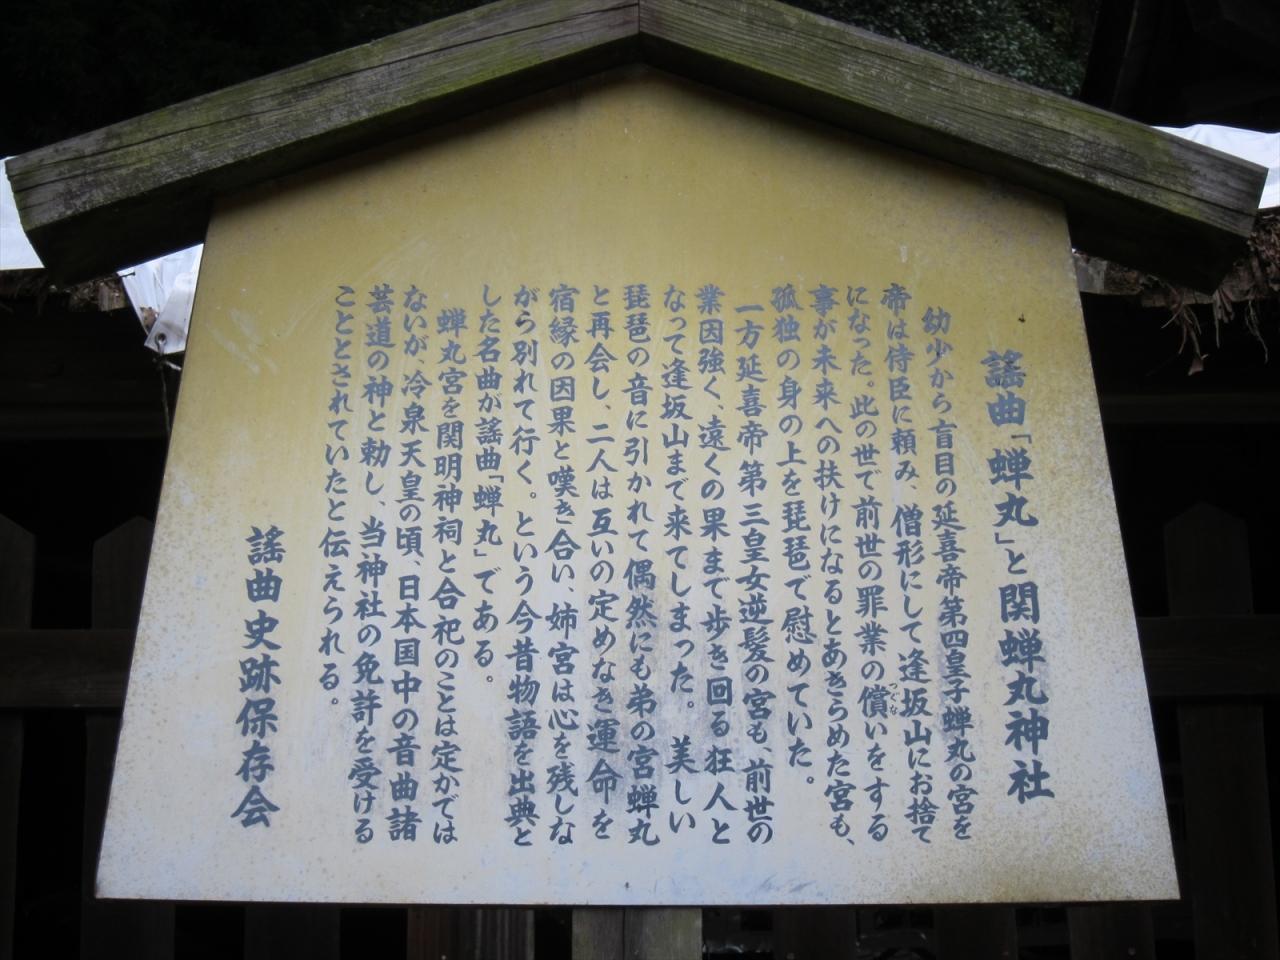 謡曲「蝉丸」と関蝉丸神社
幼少から盲目の延喜帝第四皇子蝉丸の宮を
帝は侍臣に頼み、僧形にして逢坂山にお捨て
になった。此の世で前世の罪業の償いをする
つぐな
事が未来への扶けになるとあきらめた宮も、
孤独の身の上を琵琶で慰めていた。
一方延喜帝第三皇女逆髪の宮も、前世の
業因強く、遠くの果まで歩き回る狂人と
なって逢坂山まで来てしまった。美しい
琵琶の音に引かれて偶然にも弟の宮蝉丸
と再会し、二人は互いの定めなき運命を
宿縁の因果と嘆き合い、姉宮は心を残しな
がら別れて行く。という今昔物語を出典と
した名曲が謡曲「蝉丸」である。
蝉丸宮を関明神祠と合祀のことは定かでは
ないが、冷泉天皇の頃、日本国中の音曲諸
芸道の神と勅し、当神社の免許を受ける
こととされていたと伝えられる。
謡曲史跡保存会